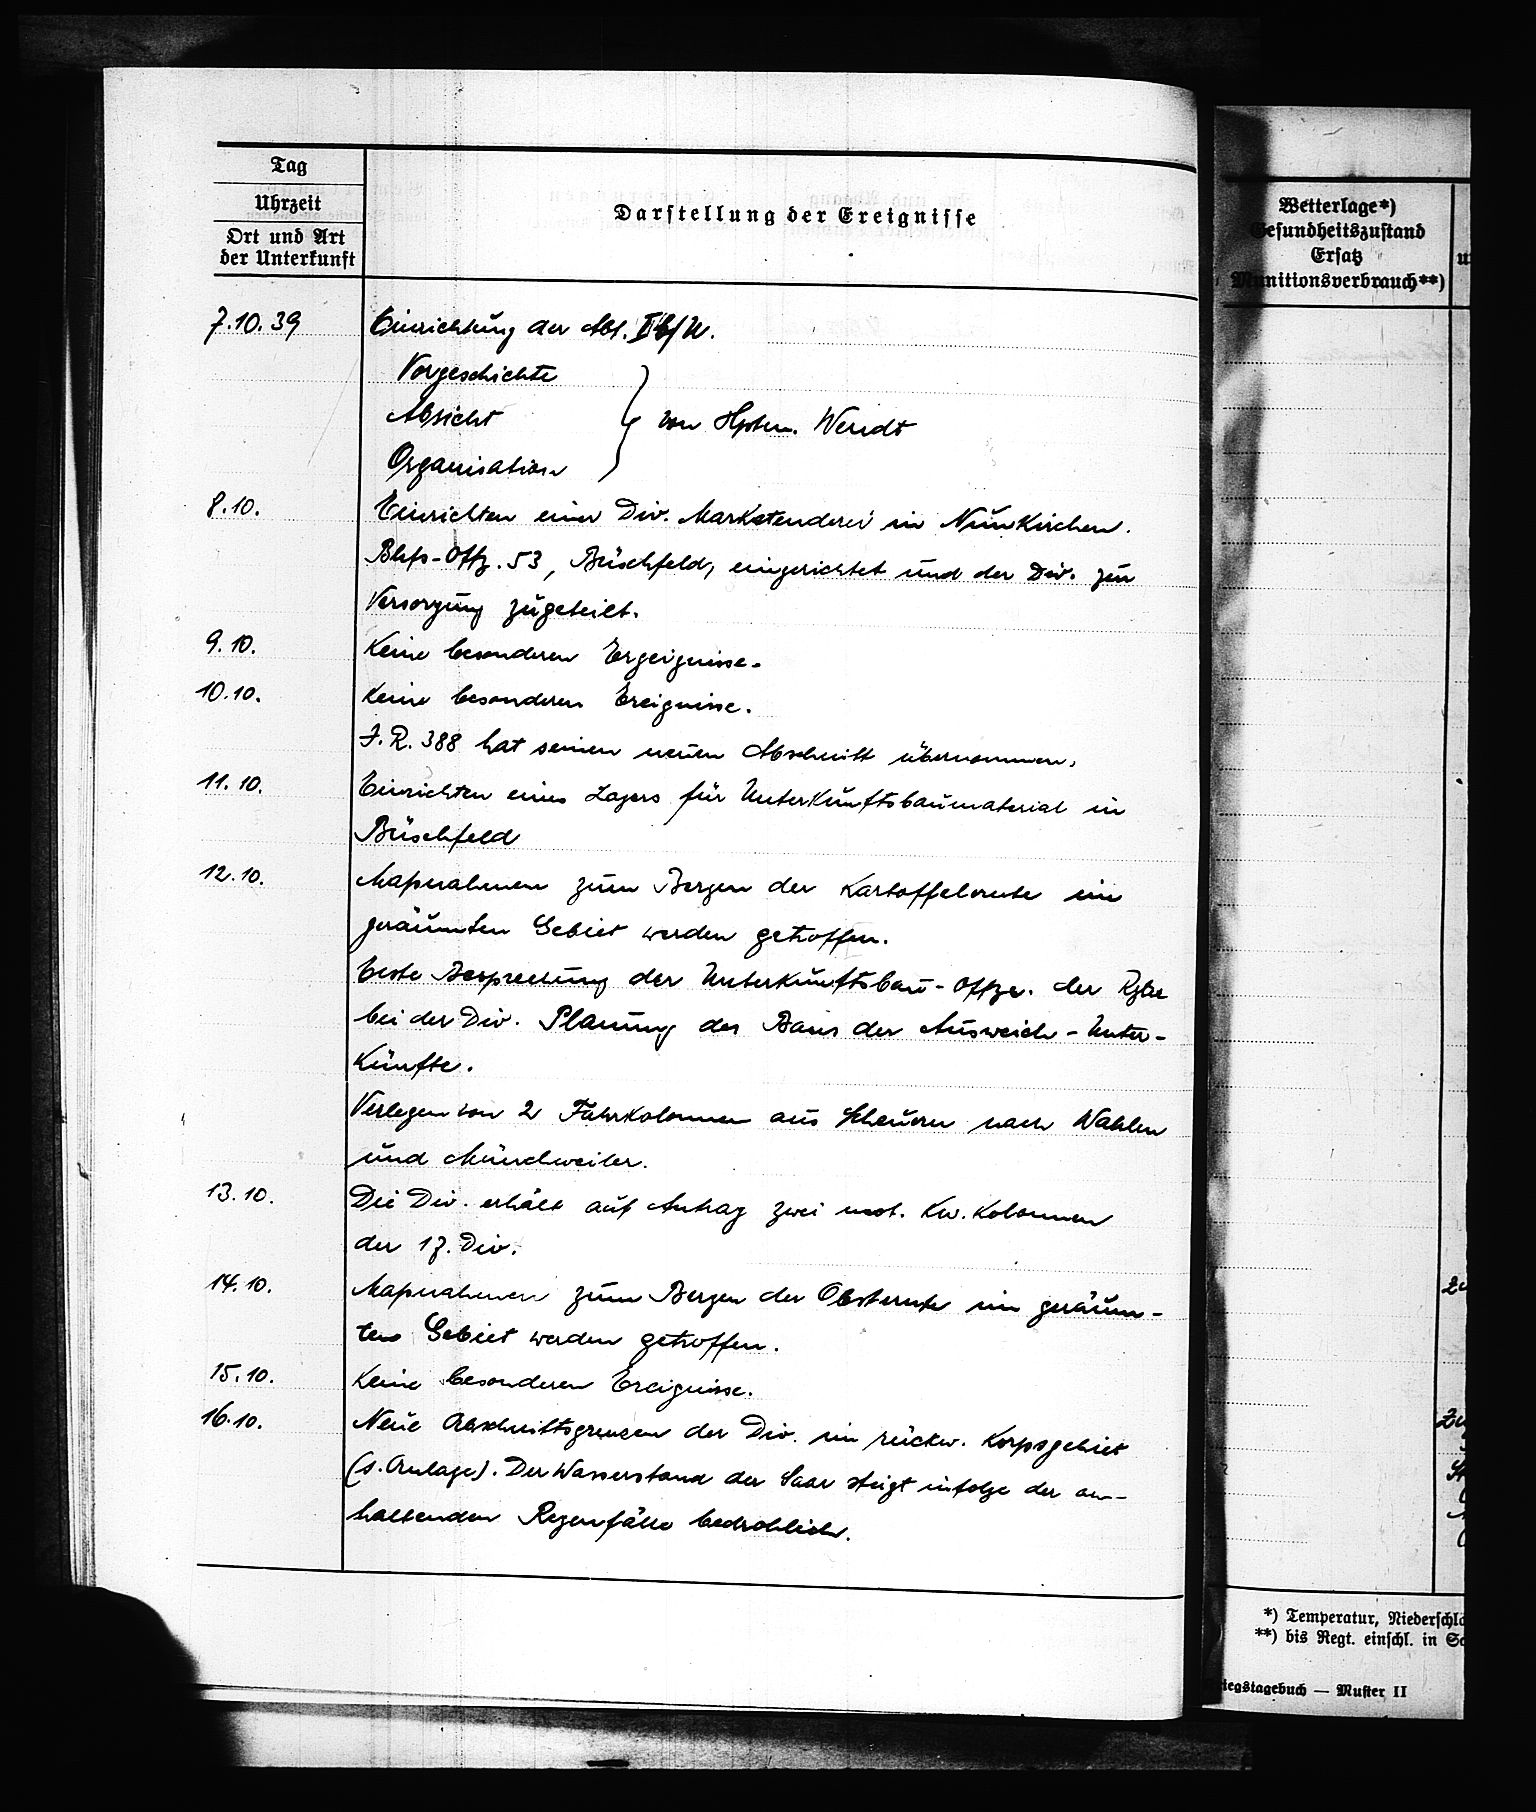 Tag
Uhrzeit
Ort und Art
der Unterkunft
Darstellung der Ereignisse
7.10.39 Einrichtung der Abt. Ib/U.
Vorgeschichte
Absicht von Hptm. Wendt
Organisation
8.10. Einrichten einer Div. Marketenderei in Nunkirchen.
Büschfeld, eingerichtet und der Div. zur
Versorgung zugeteilt.
9.10. Keine besonderen Ergeignisse.
10.10. Keine besonderen Ereignisse.
J.R. 388 hat seinen neuen Abschnitt übernommen.
11.10. Einrichten eines Lagers für Unterkunftsbaumaterial in
Büschfeld
12.10. Maßnahmen zum Bergen der Kartoffelernte im
geräumten Gebiet werden getroffen.
Erste Besprechung der Unterkunftsbau-Offze. der
bei der Div. Planung des Baus der Ausweich-Unter-
künfte.
Verlegen von 2 Fahrkolonnen aus Scheuern nach Wahlen
und Münchweiler.
13.10. Die Div. erhält auf Antrag zwei mot. Kw. Kolonnen
der 17. Div.
14.10. Maßnahmen zum Bergen der Obsternte im geräum-
ten Gebiet werden getroffen.
15.10. Keine besonderen Ereignisse.
16.10. Neue Abschnittsgrenzen der Div. im rückw. Korpsgebiet
(s. Anlage). Der Wasserstand der Saar steigt infolge der an-
haltenden Regenfälle bedrohlich.
Wetterlage*)
Gesundheitszustand
Ersatz
Munitionsverbrauch**)
*) Temperatur, Niederschlä
**) bis Regt. einschl. in Sc
iegstagebuch — Muster II